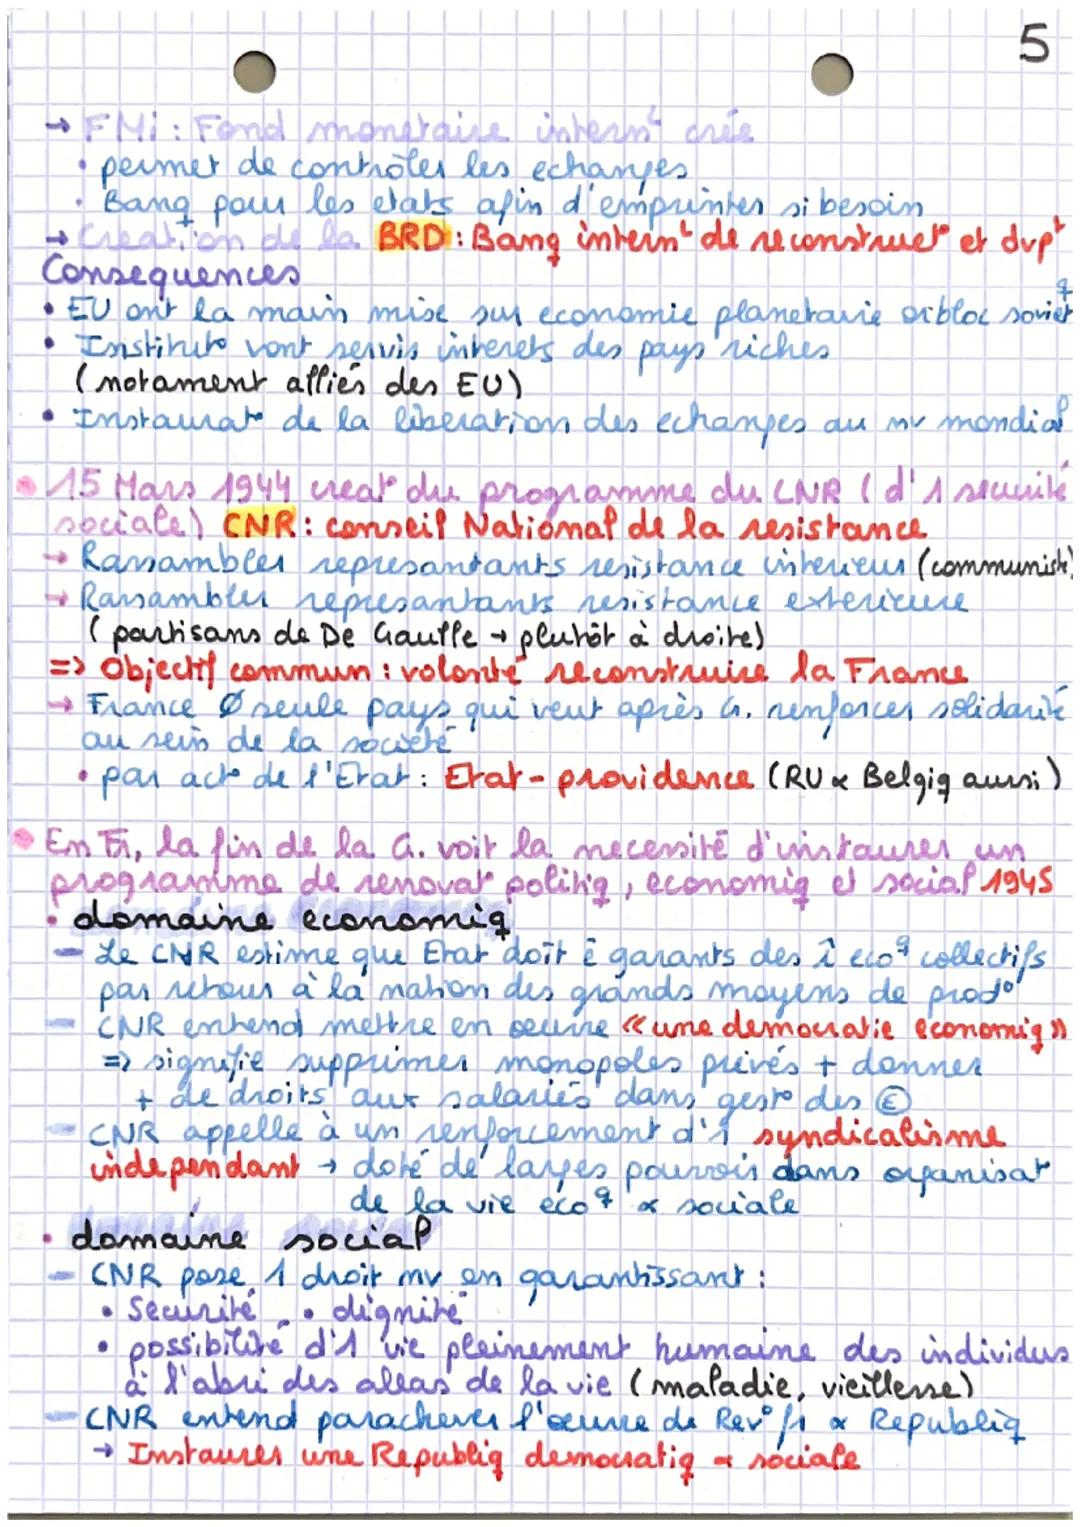 5
→ FMi : Fond monetaire internᵗ crée
• permet de contrôler les echanges
• Banq pour les etats afin d'emprinter si besoin
→ Creation de la BRD : Banq internᵗ de reconstruct° et dvpᵗ
Consequences
• EU ont la main mise sur economie planetaire or bloc soviet q
• Institut° vont servir interets des pays riches
(notament alliés des EU)
• Instaurat° de la liberation des echanges au nv mondial
• 15 Mars 1944 creat° du programme du CNR (d'1 securité
sociale) CNR : conseil National de la resistance
→ Rassambler represantants resistance interieur (communiste)
→ Rassambler represantants resistance exterieure
(partisans de De Gaulle → plutôt à droite)
=> Objectif commun : volonté reconstruire la France
→ France Ø seule pays qui veut après G. renforcer solidarité
au sein de la société
• par act° de l'Etat : Etat-providence (RU & Belgiq aussi)
• En Fr, la fin de la G. voit la necessité d'instaurer un
programme de renovat° politiq, economiq et social 1945
• domaine economiq
- Le CNR estime que Etat doît ê garants des î eco q collectifs
par retour à la nation des grands moyens de prod°
- CNR entend mettre en oeuvre « une democratie economiq »
=> signifie supprimer monopoles privés + donner
+ de droits aux salariés dans gest° des Ⓔ
- CNR appelle à un renforcement d'1 syndicalisme
independant → doté de larges pouvoir dans organisat°
de la vie éco q & sociale
• domaine social
- CNR pose 1 droit nv en garantissant :
• Securité • dignité
• possibilité d'1 vie pleinement humaine des individus
à l'abri des alleas de la vie (maladie, vieillesse)
- CNR entend parachever l'oeuvre de Rev° fr & Republiq
→ Instaurer une Republiq democratiq & sociale